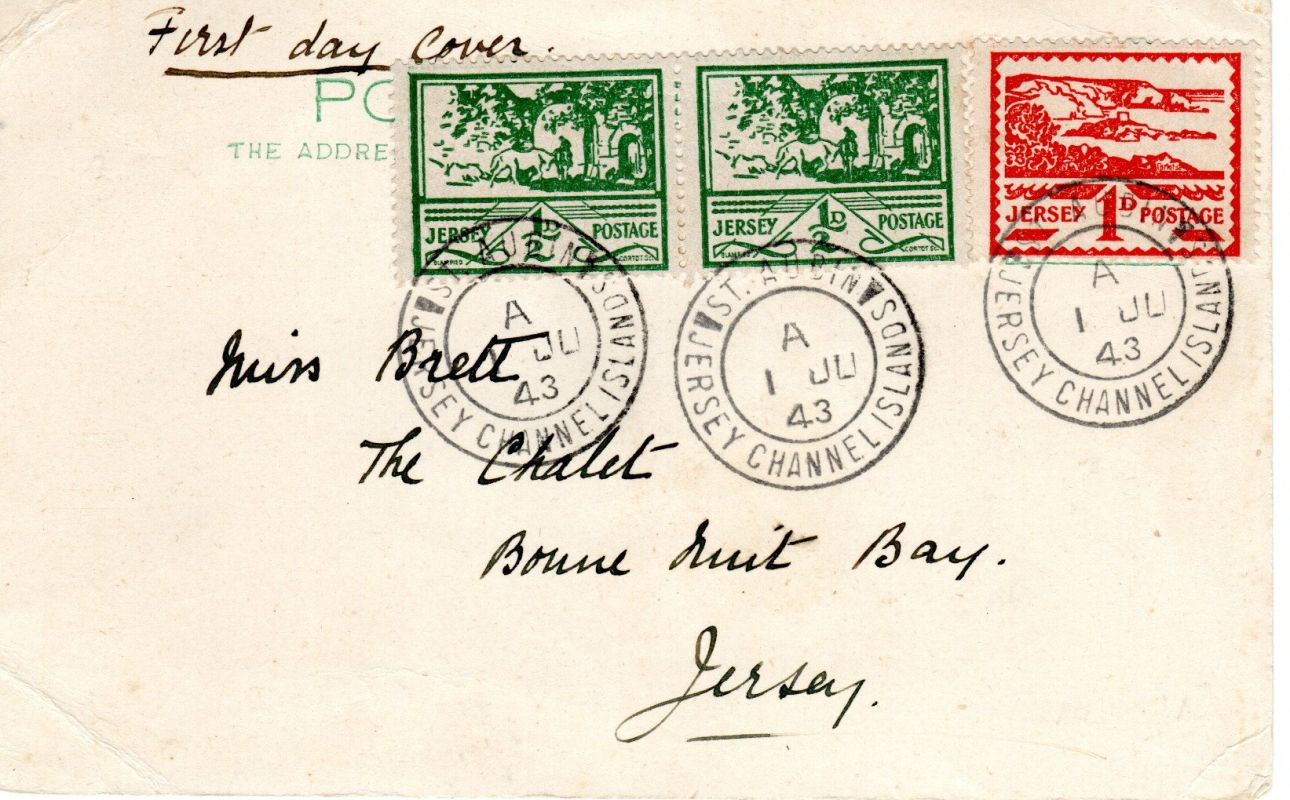 First day cover.
PO
THE ADDRE
JERSEY ½D POSTAGE
BLAMPIED CORTOT SC.
JERSEY ½D POSTAGE
BLAMPIED CORTOT SC.
JERSEY 1D POSTAGE
ST. AUBIN'S JERSEY CHANNEL ISLANDS
A
1 JU
43
ST. AUBIN JERSEY CHANNEL ISLANDS
A
1 JU
43
ST. AUBIN JERSEY CHANNEL ISLANDS
A
1 JU
43
Miss Brett
The Chalet
Bonne Nuit Bay.
Jersey.